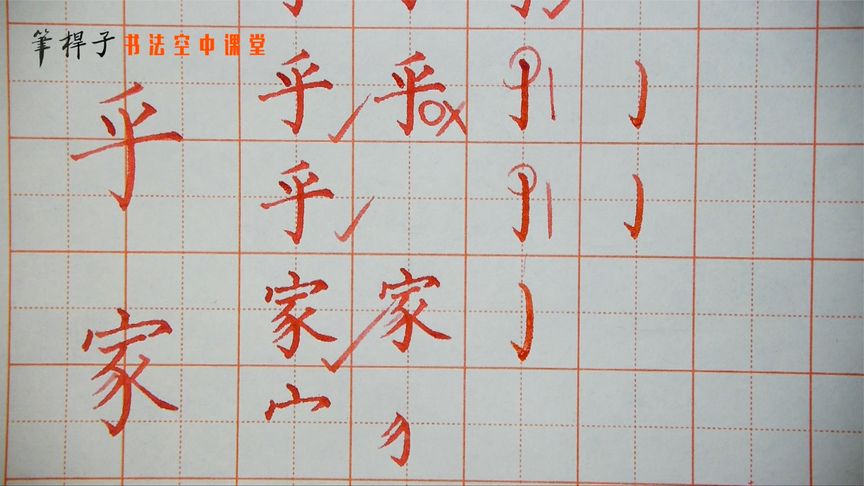 筆桿子书法空中课堂
乎 乎 乎
乎
家 家 家
宀